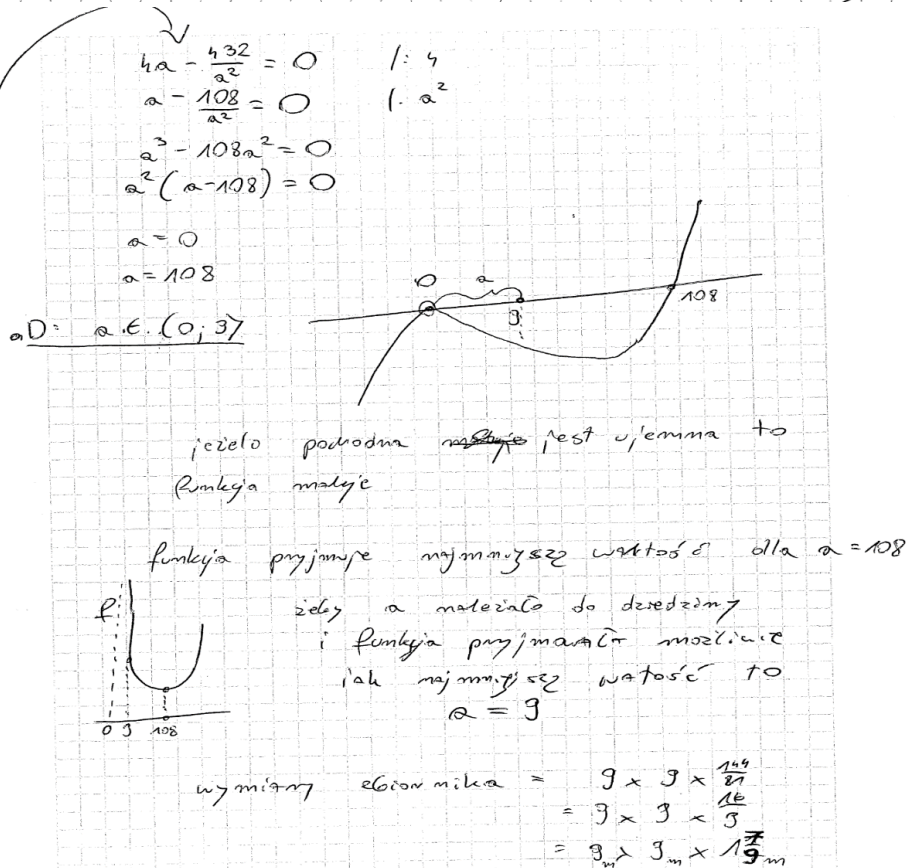 4a - 432/a² = 0 /: 4
a - 108/a² = 0 /· a²
a³ - 108a² = 0
a²(a-108) = 0
a = 0
a = 108
D: a ∈ (0; 9⟩
0 a 9 108
jeżelo pochodna jest ujemna to
funkcja maleje
funkcja przyjmuje najmniejszą wartość dla a = 108
żeby a należało do dziedziny
i funkcja przyjmowała możliwie
jak najmniejszą watość to
a = 9
f
0 9 108
wymiary zbiornika = 9 × 9 × 144/81
= 9 × 9 × 16/9
= 9m × 9m × 1 7/9 m